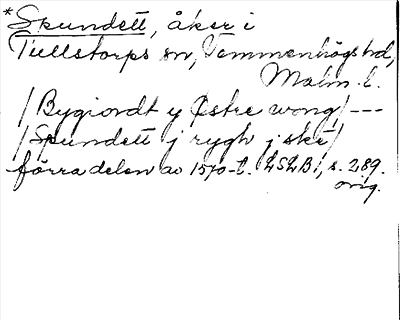 *Skundett, åker i
Tullstorps sn, Vemmenhögs hd,
Malm. l.
/Bygiordt y Østre wong/ ---
/Skundett j rygh j ske/
förra delen av 1570-t. LSLB1, s. 289.
orig.